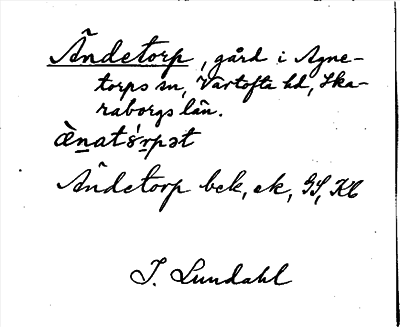 Ändetorp, gård i Agne-
torps sn, Vartofta hd, Ska-
raborgs län.
Ändetorp bek, ek, GS, KC
I. Lundahl